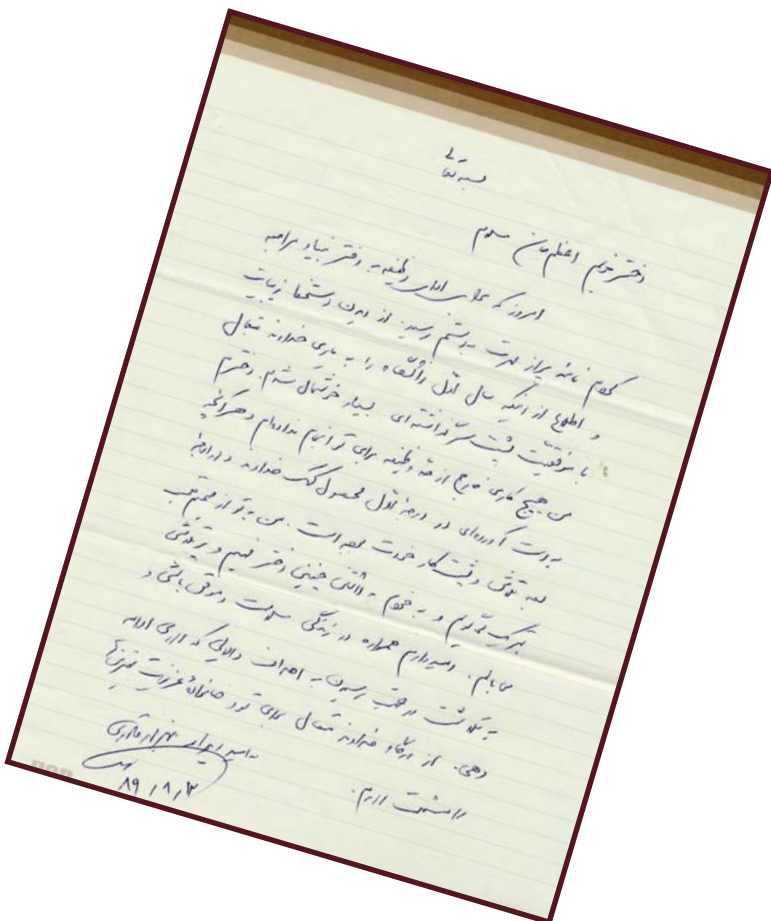 بسمه تعالی
دختر خوبم اعظم جان سلام
امروز که برای ادای وظیفه به دفتر بنیاد مراجعه
کردم نامه پراز مهرت بدستم رسید. از دیدن دستخط زیبایت
و اطلاع از اینکه سال اول دانشگاه را به یاری خداوند متعال
با موفقیت پشت سر گذاشته‌ای بسیار خوشحال شدم. دخترم
من هیچ کاری خارج از حد وظیفه برای تو انجام نداده‌ام و هر آنچه
بدست آورده‌ای در درجه اول محصول کمک خداوند و در درجه
بعد تلاش و پشتکار خودت بوده است. من به تو از صمیم قلب
تبریک می‌گویم و به خودم به داشتن چنین دختر فهیم و پرتلاشی
می‌بالم. امیدوارم همواره در زندگی سلامت و موفق باشی و
به تلاشت در جهت رسیدن به اهداف والایی که داری ادامه
دهی. از درگاه خداوند متعال برای تو و خانواده عزیزت بهترین‌ها
را مسئلت دارم.
به امید دیدار
۸۹/۸/۱۲